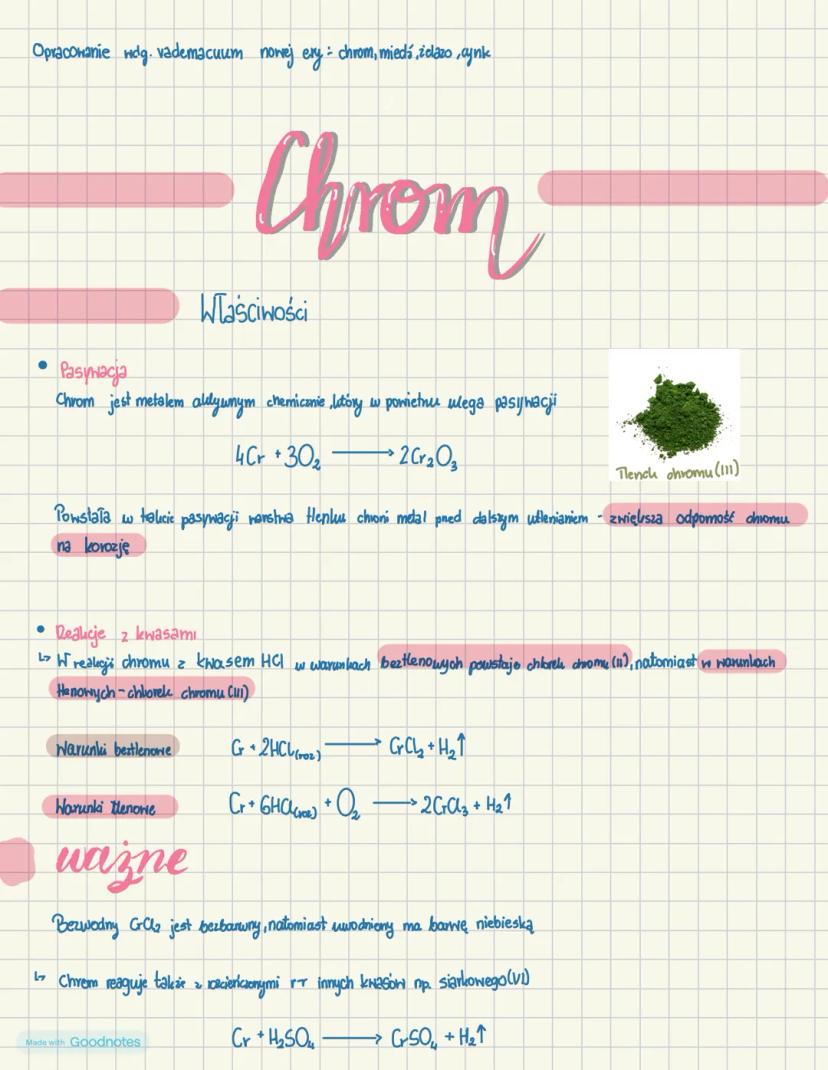 Opracowanie wdg. vademacuum nowej ery: chrom, miedź, żelazo, cynk
Chrom
Właściwości
• Pasywacja
Chrom jest metalem aktywnym chemicznie, który w powietrzu ulega pasywacji
4Cr + 3O₂ ⟶ 2Cr₂O₃
Tlenek chromu (III)
Powstała w trakcie pasywacji warstwa tlenku chroni metal przed dalszym utlenianiem - zwiększa odporność chromu
na korozję
• Reakcje z kwasami
↳ W reakcji chromu z kwasem HCl w warunkach beztlenowych powstaje chlorek chromu (II), natomiast w warunkach
tlenowych - chlorek chromu (III)
Warunki beztlenowe Cr + 2HCl(roz) ⟶ CrCl₂ + H₂↑
Warunki tlenowe Cr + 6HCl(roz) + O₂ ⟶ 2CrCl₃ + H₂↑
ważne
Bezwodny CrCl₂ jest bezbarwny, natomiast uwodniony ma barwę niebieską
↳ Chrom reaguje także z rozcieńczonymi r-r innych kwasów np. siarkowego (VI)
Cr + H₂SO₄ ⟶ CrSO₄ + H₂↑
Made with Goodnotes